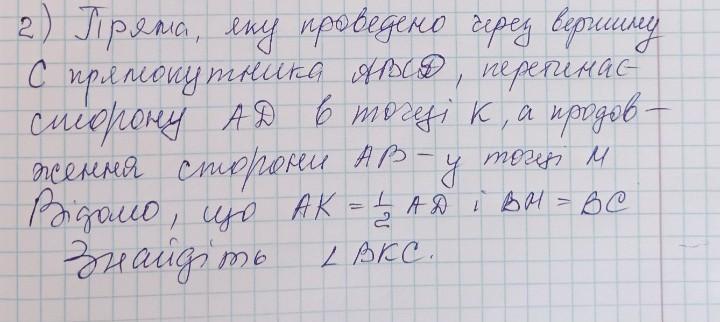 2) Пряма, яку проведено через вершину
С прямокутника ABCD, перетинає
сторону AD в точці К, а продов-
ження сторони АВ - у точці М
Відомо, що AK = 1/2 AD і BM = BC
Знайдіть ∠BKC.